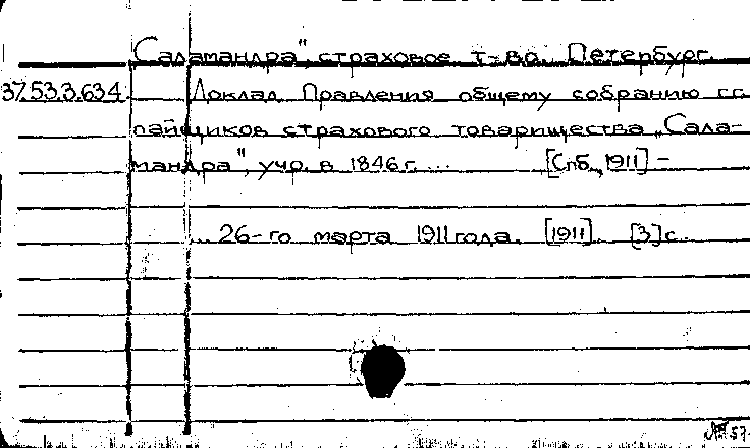 Саламандра", страховое т-во. Петербург.
37.53.3.634 Доклад Правления общему собранию г.г.
пайщиков страхового товарищества „Сала-
мандра", учр. в 1846 г. ... [Спб, 1911] -
... 26-го марта 1911 года. [1911]. [3] с.
57